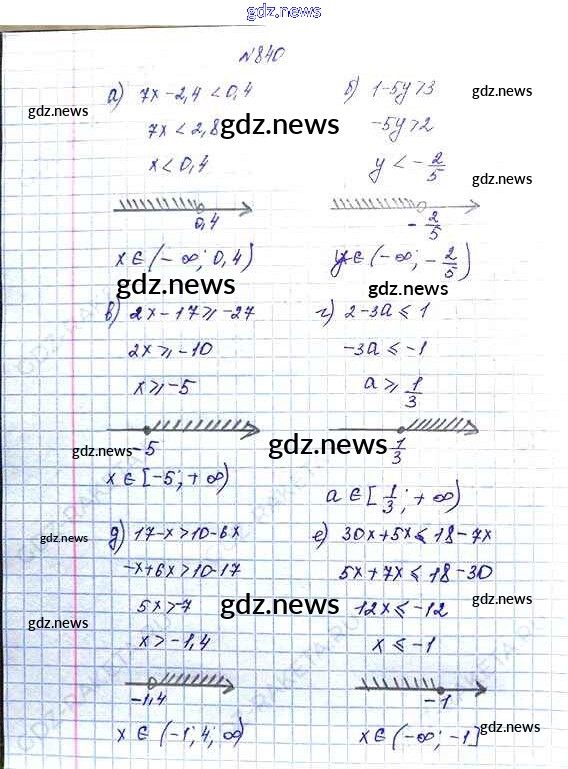 gdz.news
№840
а) 7x-2,4<0,4
7x<2,8
x<0,4
0,4
x∈(-∞; 0,4)
б) 1-5y>3
-5y>2
y<-2/5
-2/5
y∈(-∞; -2/5)
gdz.news
gdz.news
gdz.news
gdz.news
gdz.news
gdz.news
в) 2x-17⩾-27
2x⩾-10
x⩾-5
-5
x∈[-5; +∞)
г) 2-3a⩽1
-3a⩽-1
a⩾1/3
1/3
a∈[1/3; +∞)
gdz.news
gdz.news
gdz.news
д) 17-x>10-6x
-x+6x>10-17
5x>-7
x>-1,4
-1,4
x∈(-1,4; ∞)
е) 30x+5x⩽18-7x
5x+7x⩽18-30
12x⩽-12
x⩽-1
-1
x∈(-∞; -1]
gdz.news
gdz.news
gdz.news
gdz.news
gdz.news